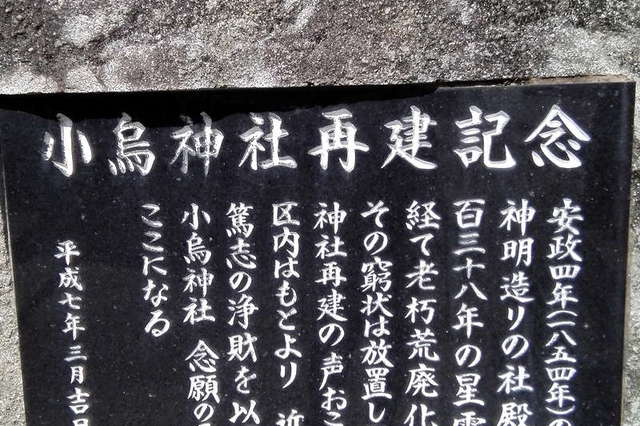 小烏神社再建記念
安政四年(一八五四年)の
神明造りの社殿
百三十八年の星霜
経て老朽荒廃化
その窮状は放置し
神社再建の声おこ
区内はもとより 近
篤志の浄財を以
小烏神社 念願の再
ここになる
平成七年三月吉日